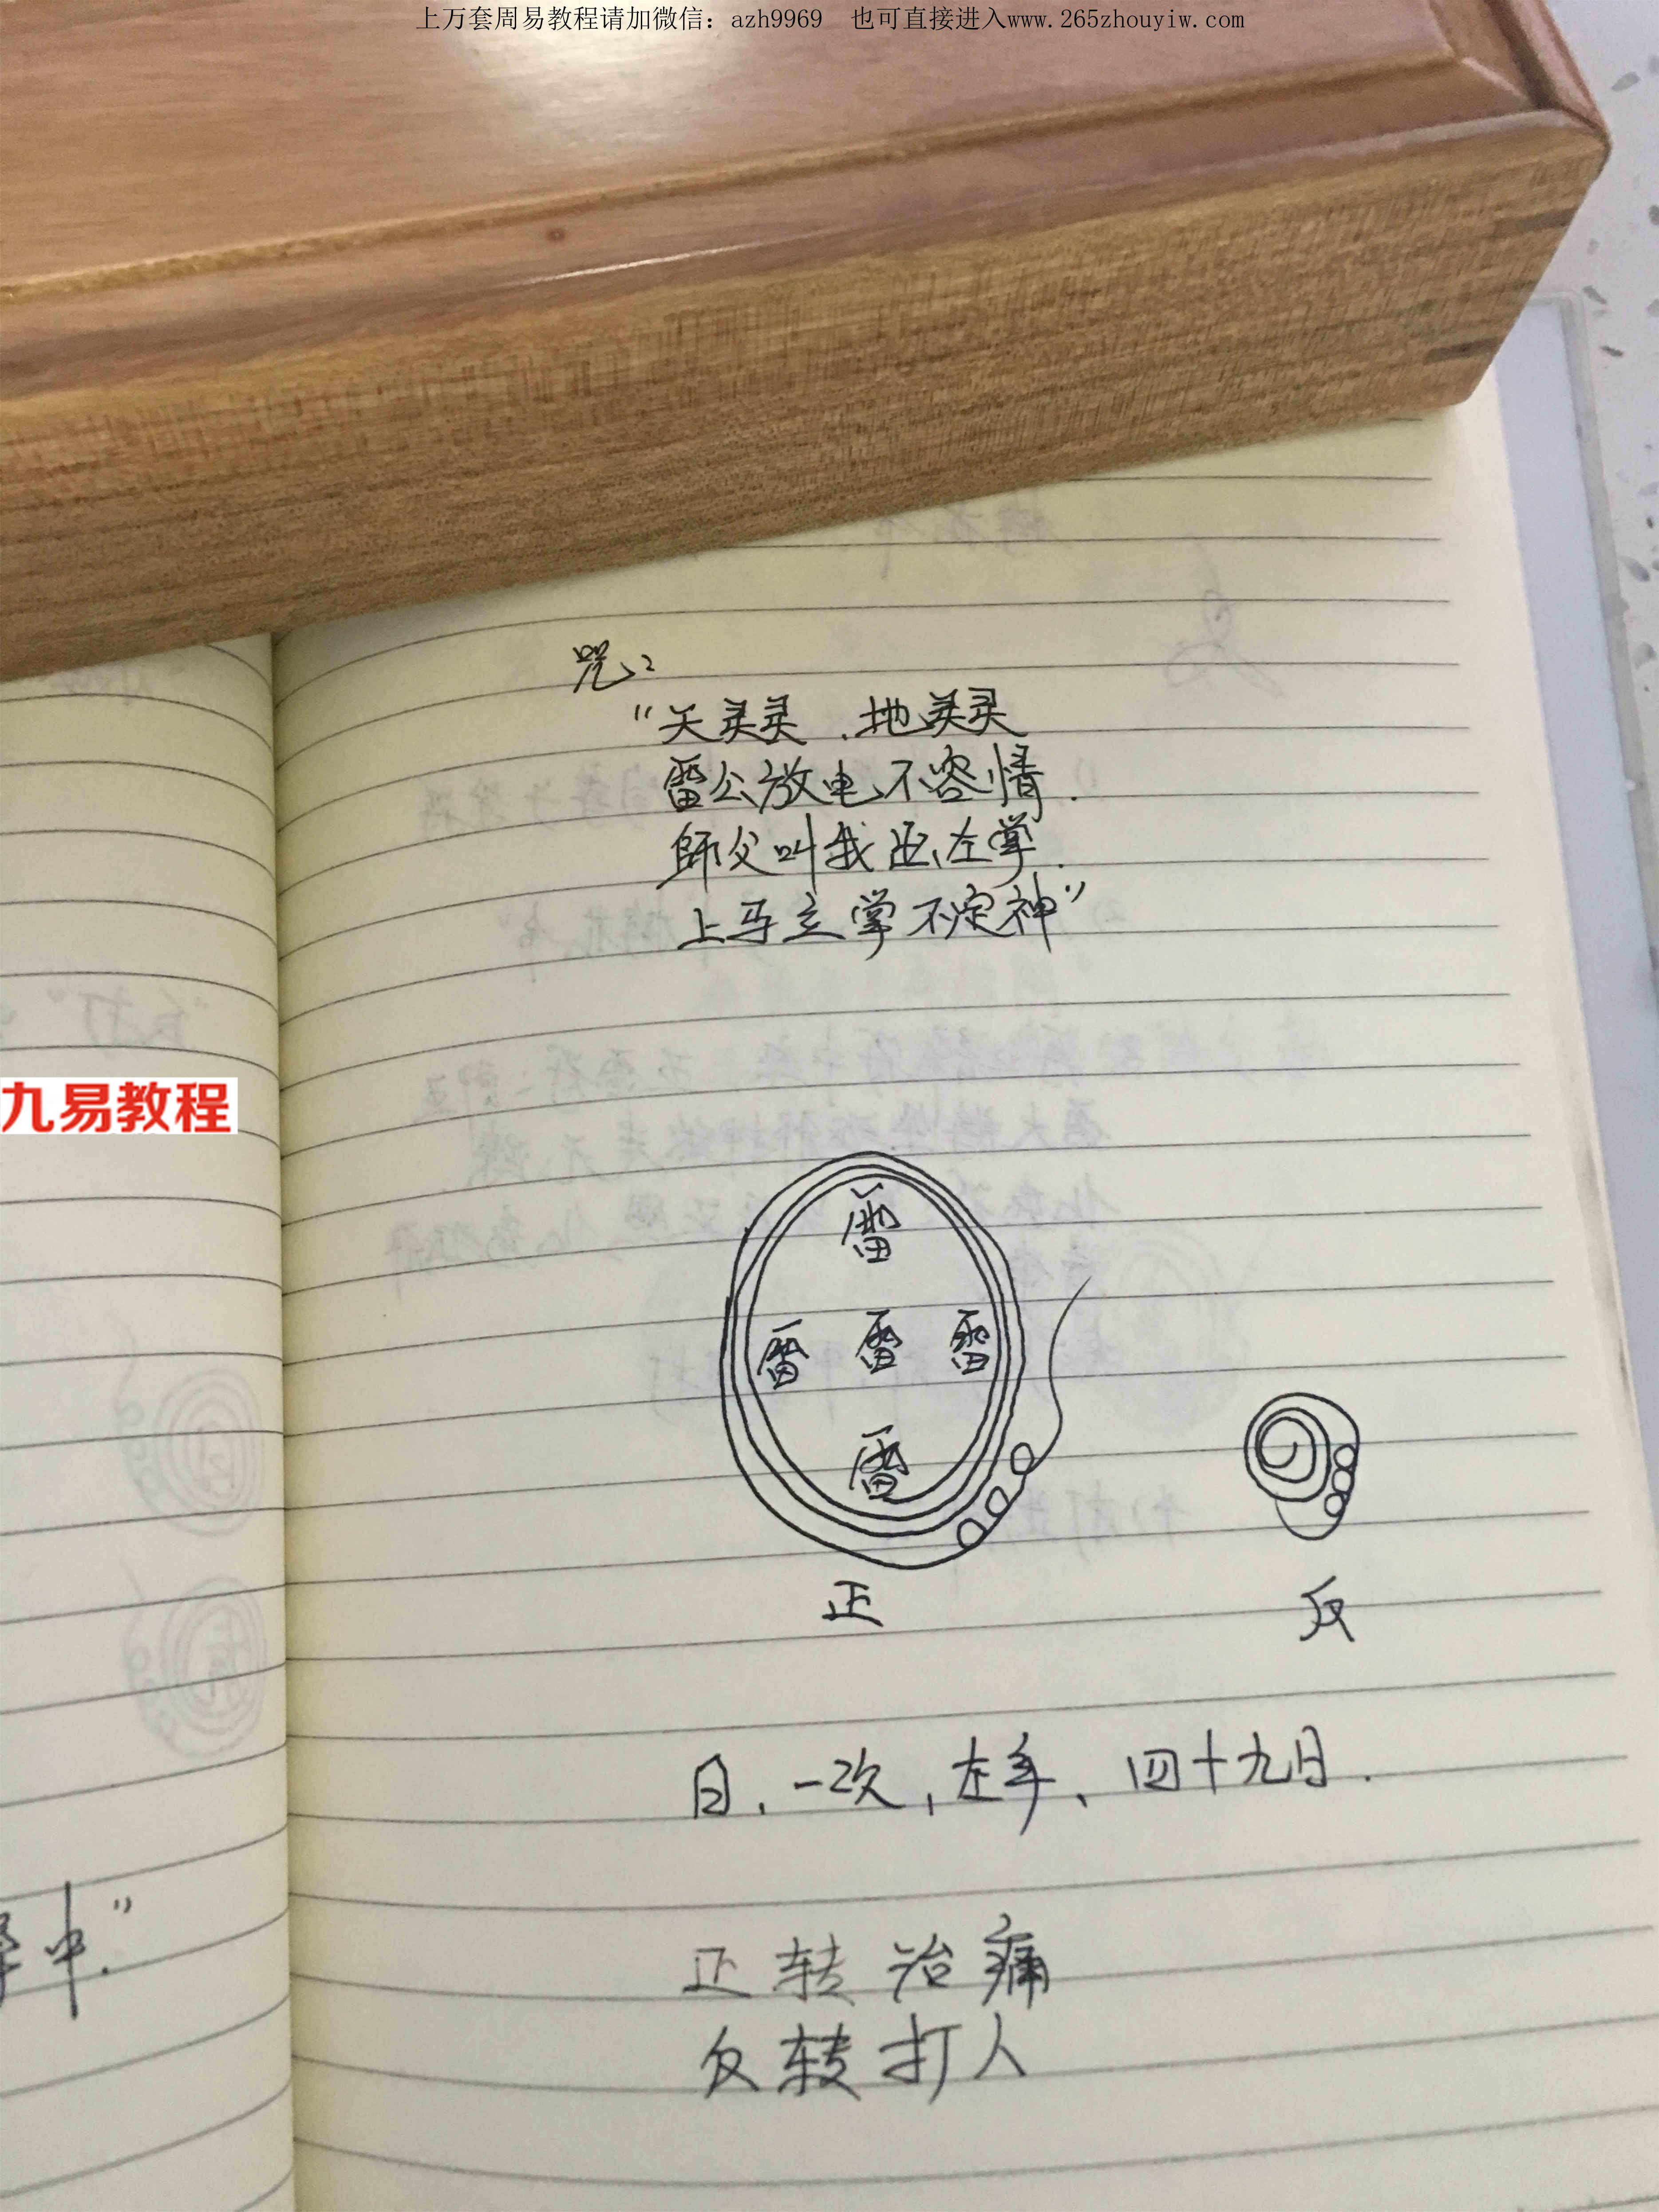 上万套周易教程请加微信：azh9969 也可直接进入www.265zhouyiw.com
咒：
“天灵灵．地灵灵
雷公放电不容情．
師父叫我 左掌．
上马立掌不定神”
九易教程
雷
雷 雷 雷
雷
正
反
日．一次，左手、四十九日．
中．”
正转治痛
反转打人